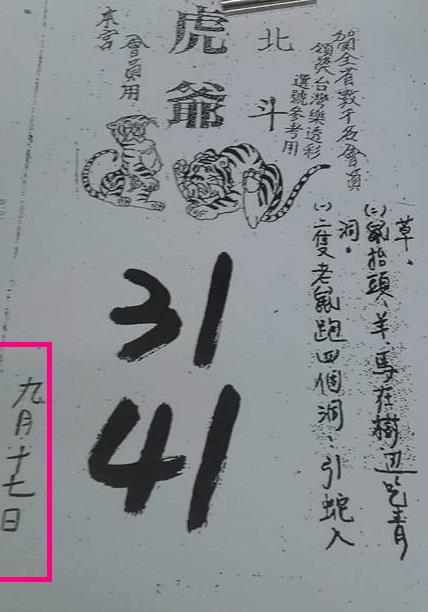 賀全省數千名會員
領獎台灣樂透彩
選號參考用
北斗
虎爺
會員用
本宮
(一)二隻老鼠跑四個洞：引蛇入
洞。
(二)鼠抬頭、羊馬在樹边吃青
草。
31
41
九月十七日